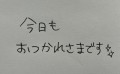 今日も
おつかれさまです☆